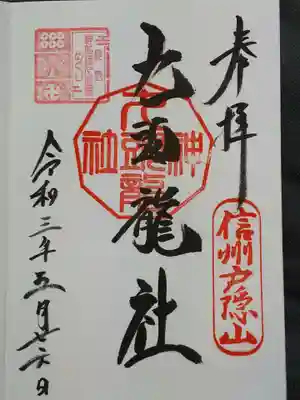 奉拝
信州戸隠山
九頭龍社
九頭龍
神社
令和三年五月二六日